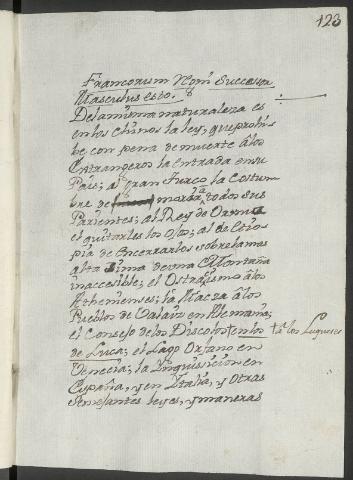 123
Francorum Nomj Successor
Masculus esto.
Delamisma naturaleza es
enlos Chinos la ley, que prohi-
be con pena de muerte âlos
Extrangeros la entrada ensu
Pais; al Gran Turco la Costum
bre de matar â todos sus
Parientes; al Rey de Ormuz
el quitarles los ojos; al de Etio
pia de encerrarlos sobrelamas
alta Sima de vna Montaña
inaccesible; el Ostrazismo âlos
Athenienses; la Mazza âlos
Pueblos de en Alemania;
el Consejo delos Discolos enlos tâ los Luqueses
de Luca; el Lago Orfano en
Venecia; la Inquisicion en
España, y en Italia, y otras
Semejantes leyes, y maneras